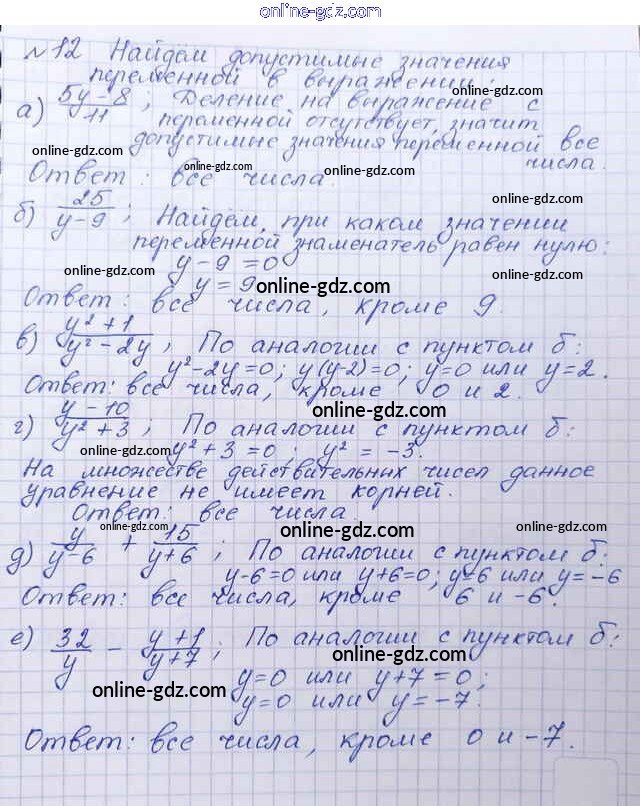 online-gdz.com
№12 Найдём допустимые значения
переменной в выражении:
online-gdz.com
а) (5y-8)/11; Деление на выражение с
переменной отсутствует, значит
online-gdz.com
допустимые значения переменной все
числа.
online-gdz.com
Ответ: все числа.
online-gdz.com
б) 25/(y-9); Найдём, при каком значении
переменной знаменатель равен нулю:
online-gdz.com
y-9=0
online-gdz.com
y=9
online-gdz.com
Ответ: все числа, кроме 9.
online-gdz.com
в) (y²+1)/(y²-2y); По аналогии с пунктом б:
y²-2y=0; y(y-2)=0; y=0 или y=2.
Ответ: все числа, кроме 0 и 2.
online-gdz.com
г) (y-10)/(y²+3); По аналогии с пунктом б:
online-gdz.com
y²+3=0; y²=-3.
На множестве действительных чисел данное
уравнение не имеет корней.
Ответ: все числа.
online-gdz.com
online-gdz.com
д) y/(y-6) + 15/(y+6); По аналогии с пунктом б:
y-6=0 или y+6=0; y=6 или y=-6
online-gdz.com
Ответ: все числа, кроме 6 и -6.
е) 32/y - (y+1)/(y+7); По аналогии с пунктом б:
online-gdz.com
y=0 или y+7=0;
online-gdz.com
y=0 или y=-7.
Ответ: все числа, кроме 0 и -7.